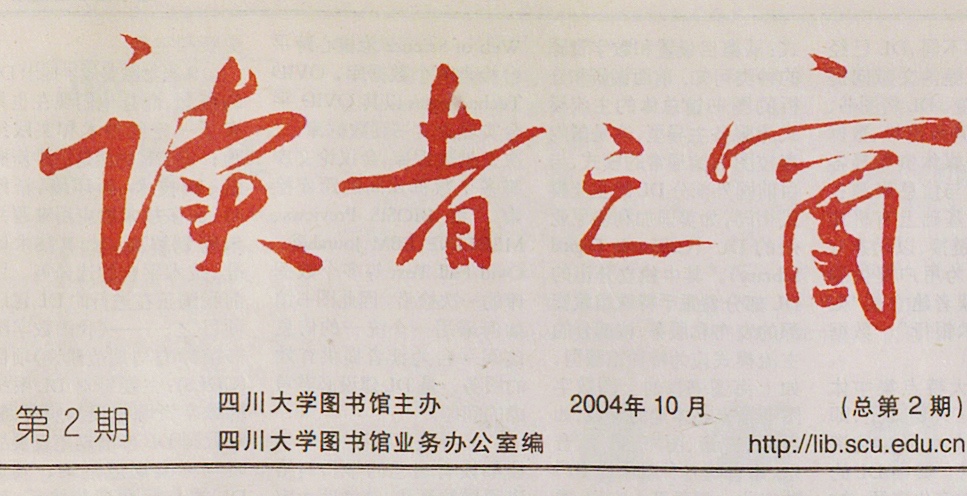 读者之窗
第2期
四川大学图书馆主办 2004年10月 (总第2期)
四川大学图书馆业务办公室编 http://lib.scu.edu.cn